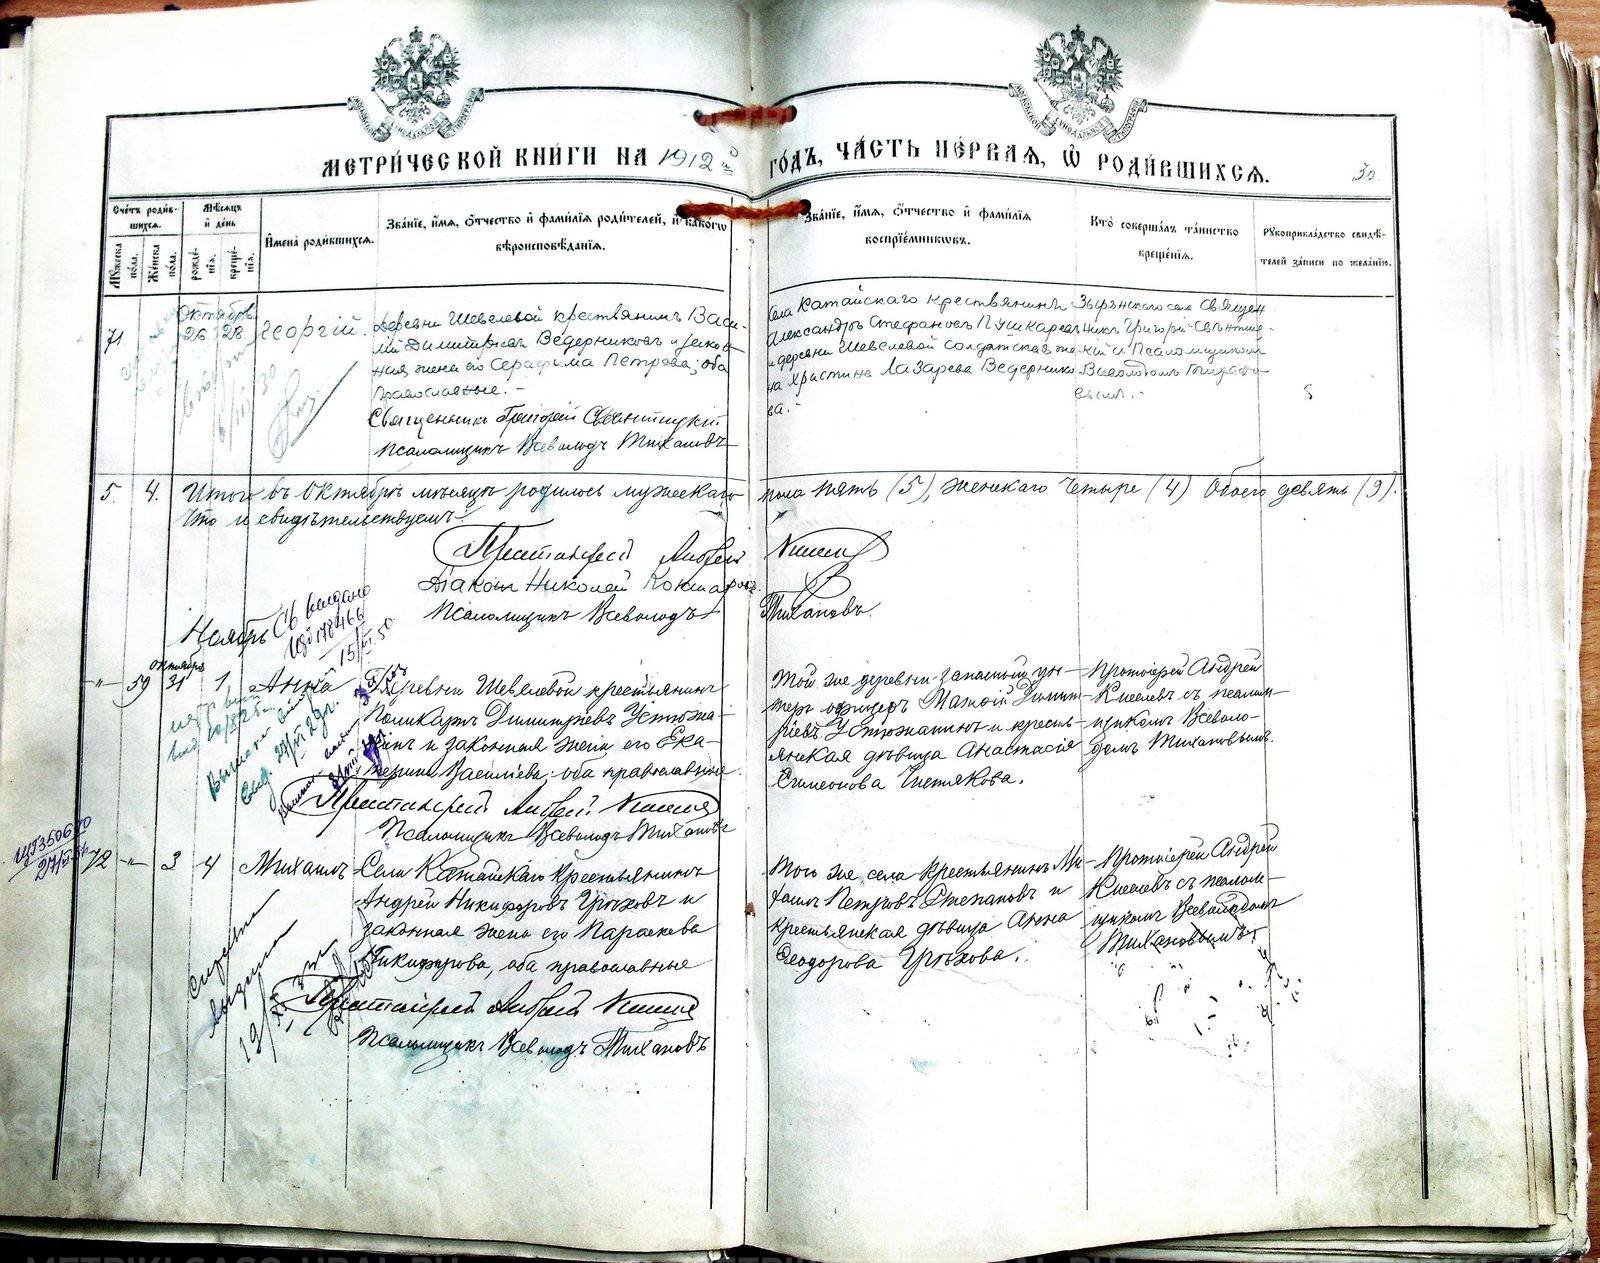 МЕТРИ́ЧЕСКОЙ КНИ́ГИ НА 1912й ГО́ДЪ, ЧА́СТЬ ПЕ́РВАЯ, Ѡ҆ РОДИ́ВШИХСѦ.
30.
Сче́тъ роди́в-
шихся.
Мꙋ́жеска по́ла.
Же́нска по́ла.
Мѣ́сяцъ
и҆ де́нь
рожде́-
нїѧ.
креще́-
нїѧ.
И҆мена̀ роди́вшихся.
Зва́нїе, и҆́мя, ѻ҆́тчество и҆ фамилїя роди́телей, и҆ како́гѡ
вѣроисповѣ́данїя.
Зва́нїе, и҆́мя, ѻ҆́тчество и҆ фамилїя
воспрїе́мниковъ.
Кто̀ соверша́лъ та́инство
креще́нїя.
Рꙋкоприкла́дство свидѣ́-
телей за́писи по жела́нїю.
71
Октябрь
26 28
Георгій.
Деревни Шевелевой крестьянинъ Васи-
лій Димитріевъ Ведерниковъ и закон-
ная жена его Серафима Петрова; оба
православные.-
Священникъ Григорій
Псаломщикъ Всеволодъ Тихановъ
Села Катайскаго крестьянинъ
Александръ Стефановъ Пушкаревъ
и деревни Шевелевой солдатская же-
на Христина Лазарева Ведернико-
ва.-
Зырянскаго села Священ
никъ Григорій
Псаломщикомъ
Всеволодомъ Тихано-
вымъ.-
5. 4. Итого въ Октябрѣ мѣсяцѣ родилось мужескаго пола пять (5), женскаго четыре (4) Обоего девять (9).
Что и свидѣтельствуемъ:
Протоіерей Андрей Киселевъ
Діаконъ Николай
Псаломщикъ Всеволодъ Тихановъ.
Ноябрь
Св выдано
15/VI 50
октября
-"- 59 31 1 Анна
Деревни Шевелевой крестьянинъ
Поликарпъ Димитріевъ Устюжа-
нинъ и законная жена его Ека-
терина Васильева, оба православные.
Протоіерей Андрей Киселевъ
Псаломщикъ Всеволодъ Тихановъ
Той же деревни запасный ун-
теръ офицеръ Димит-
ріевъ Устюжанинъ и кресть-
янская дѣвица Анастасія
Симеонова Чистякова.
Протоіерей Андрей
Киселевъ съ псалом-
щикомъ Всеволо-
домъ Тихановымъ.
72 -"- 3 4 Михаилъ
Села Катайскаго крестьянинъ
Андрей Никифоровъ Грѣховъ и
законная жена его Параскева
Никифорова, оба православные
Протоіерей Андрей Киселевъ
Псаломщикъ Всеволодъ Тихановъ
Того же села крестьянинъ Ми-
хаилъ Петровъ Степановъ и
крестьянская дѣвица Анна
Ѳеодорова Грѣхова.
Протоіерей Андрей
Киселевъ съ псалом-
щикомъ Всеволодомъ
Тихановымъ.